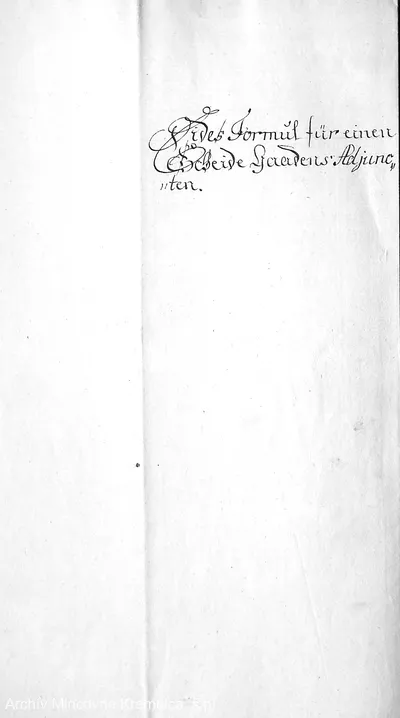 Eides Formul für einen
Scheide Gaadens Adjunc„
„ten.
Archív Mincovne Kremnica